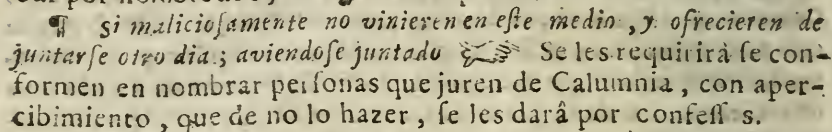 ¶ si maliciosamente no vinieren en este medio, y ofrecieren de
juntarse otro dia; aviendose juntado ☞ Se les requirirà se con-
formen en nombrar personas que juren de Calumnia, con aper-
cibimiento, que de no lo hazer, se les darâ por confess s.